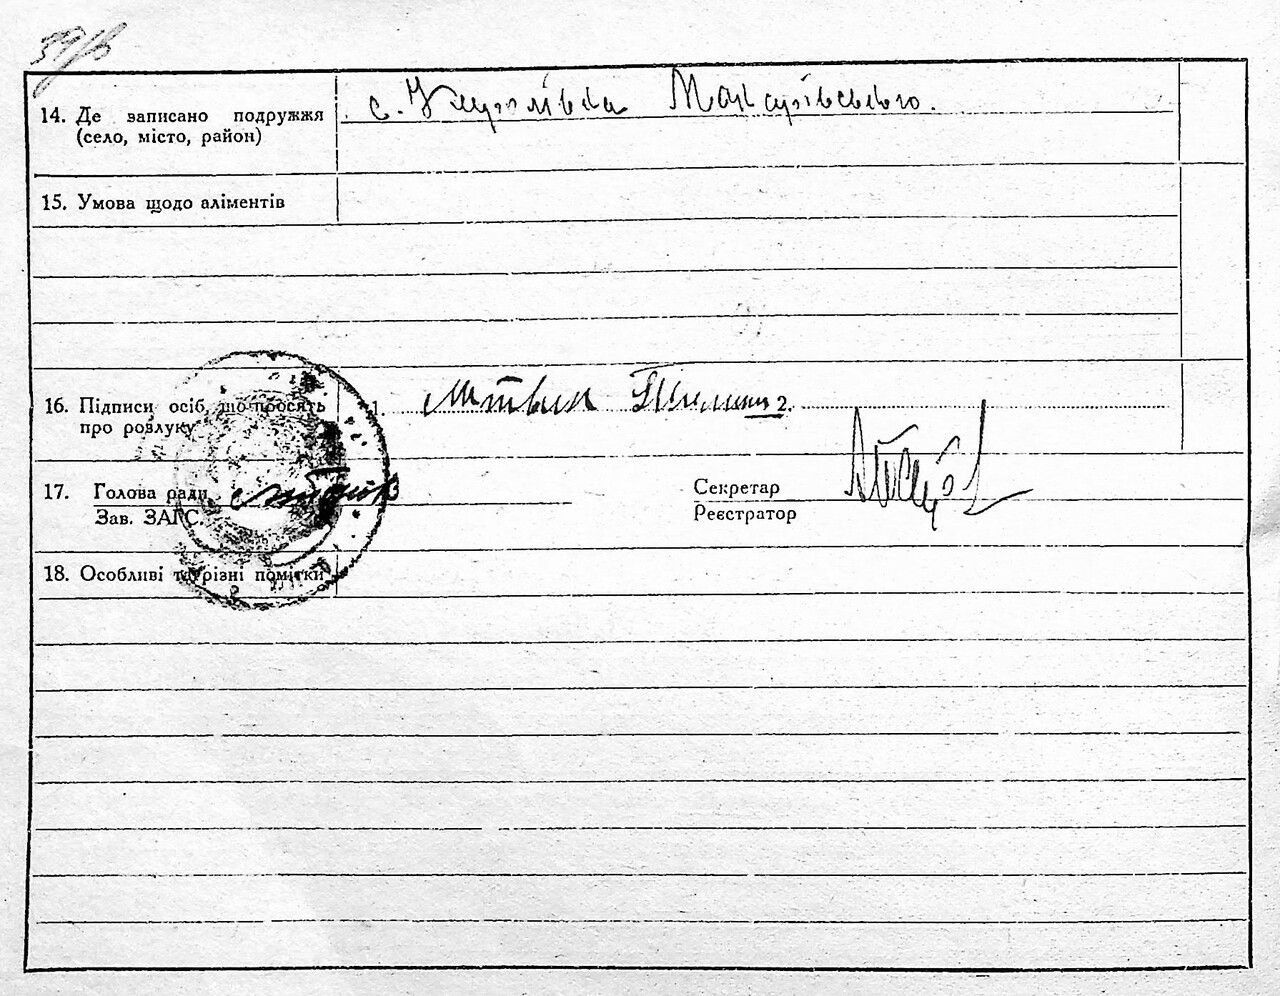 14. Де записано подружжя
(село, місто, район)
с. Королівка Макарівського.
15. Умова щодо аліментів
16. Підписи осіб, що просять
про розлуку
1.
2.
17. Голова ради
Зав. ЗАГС.
Секретар
Реєстратор
18. Особливі та різні помітки